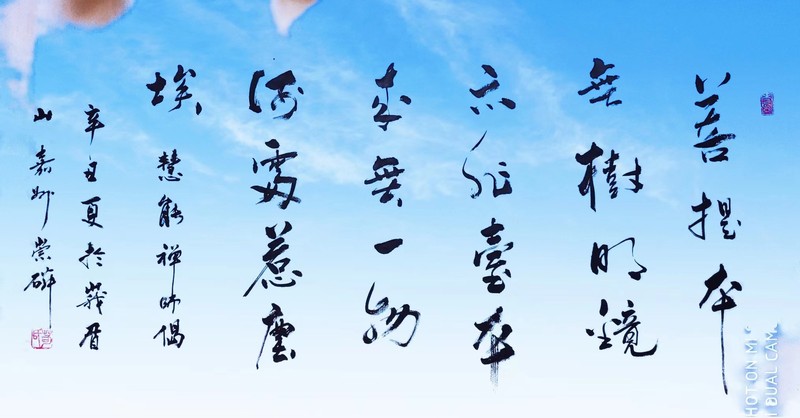 菩提本
無樹明鏡
亦非臺本
来無一物
何處惹塵
埃 慧能禅師偈
辛丑夏於峩眉
山嘉州崇
HOT ON MI
I DUAL CAM